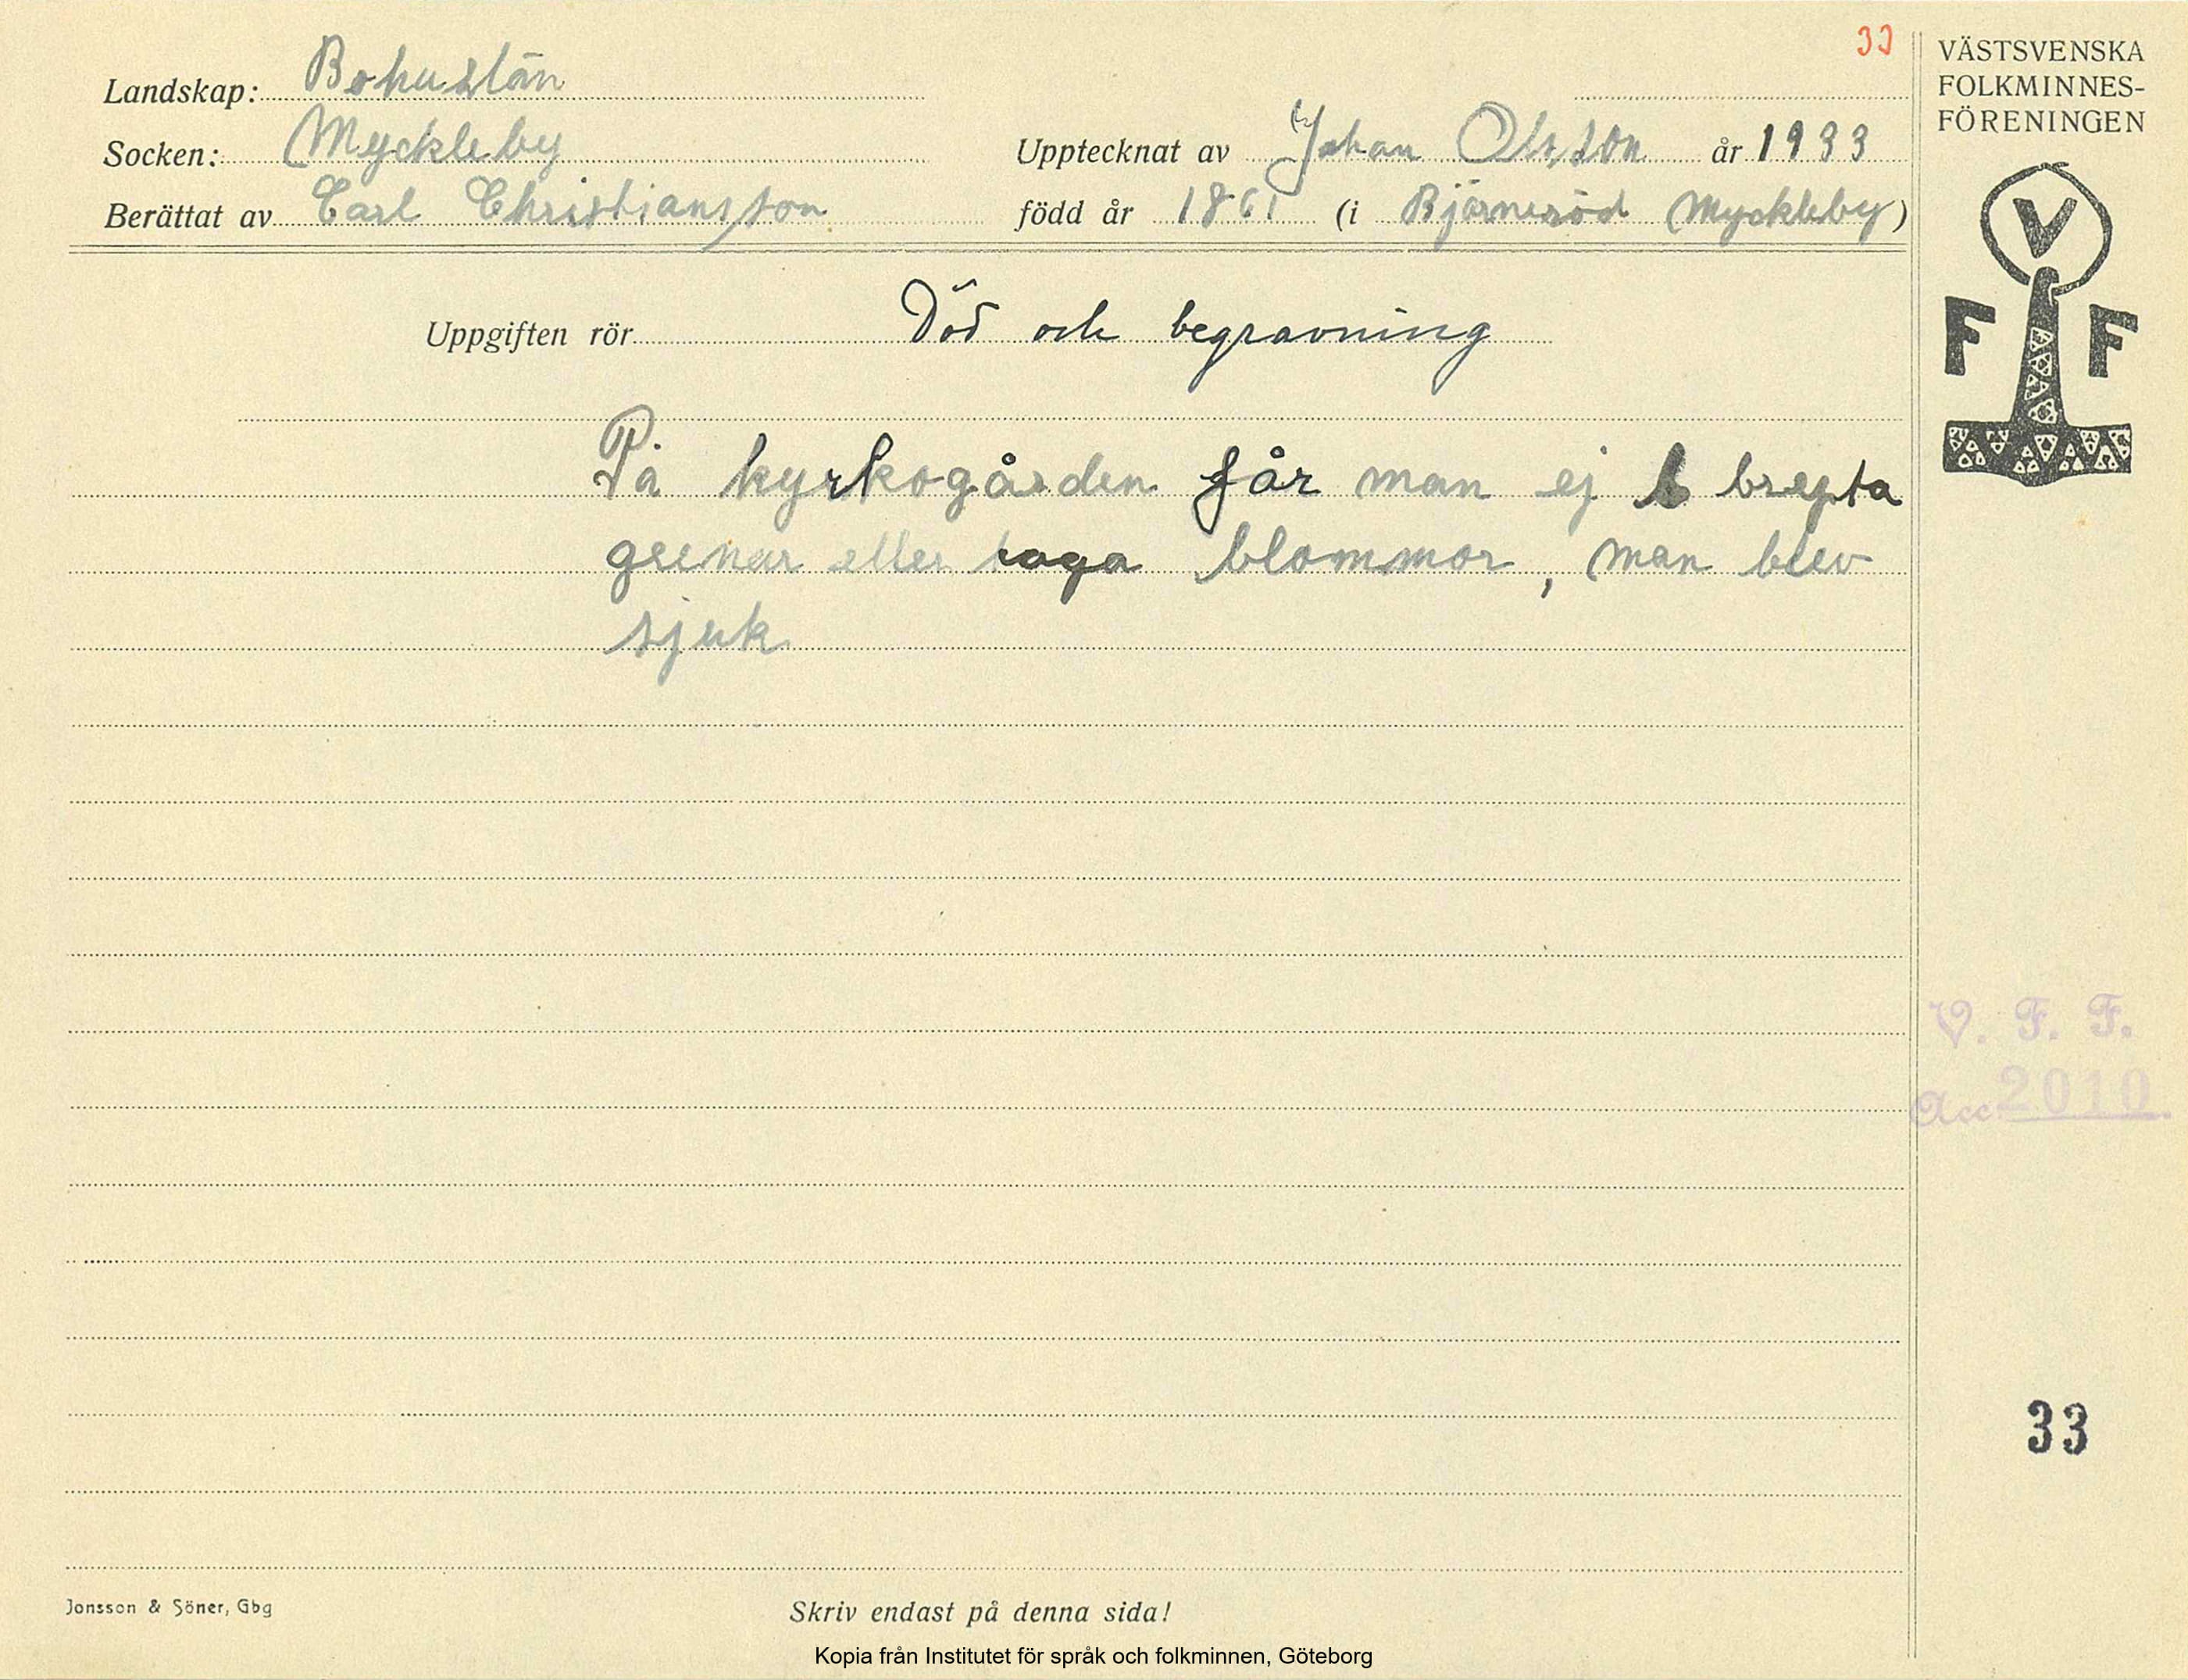 33
VÄSTSVENSKA
FOLKMINNES-
FÖRENINGEN
V
F F
Landskap: Bohuslän
Socken: Myckleby Upptecknat av Johan Olsson år 1933
Berättat av Carl Christiansson född år 1861 (i Björneröd Myckleby)
Uppgiften rör Död och begravning
På kyrkogården får man ej brepta
grenar eller taga blommor, man blev
sjuk
V. F. F.
Acc 2010.
33
Jonsson & Söner, Gbg
Skriv endast på denna sida!
Kopia från Institutet för språk och folkminnen, Göteborg